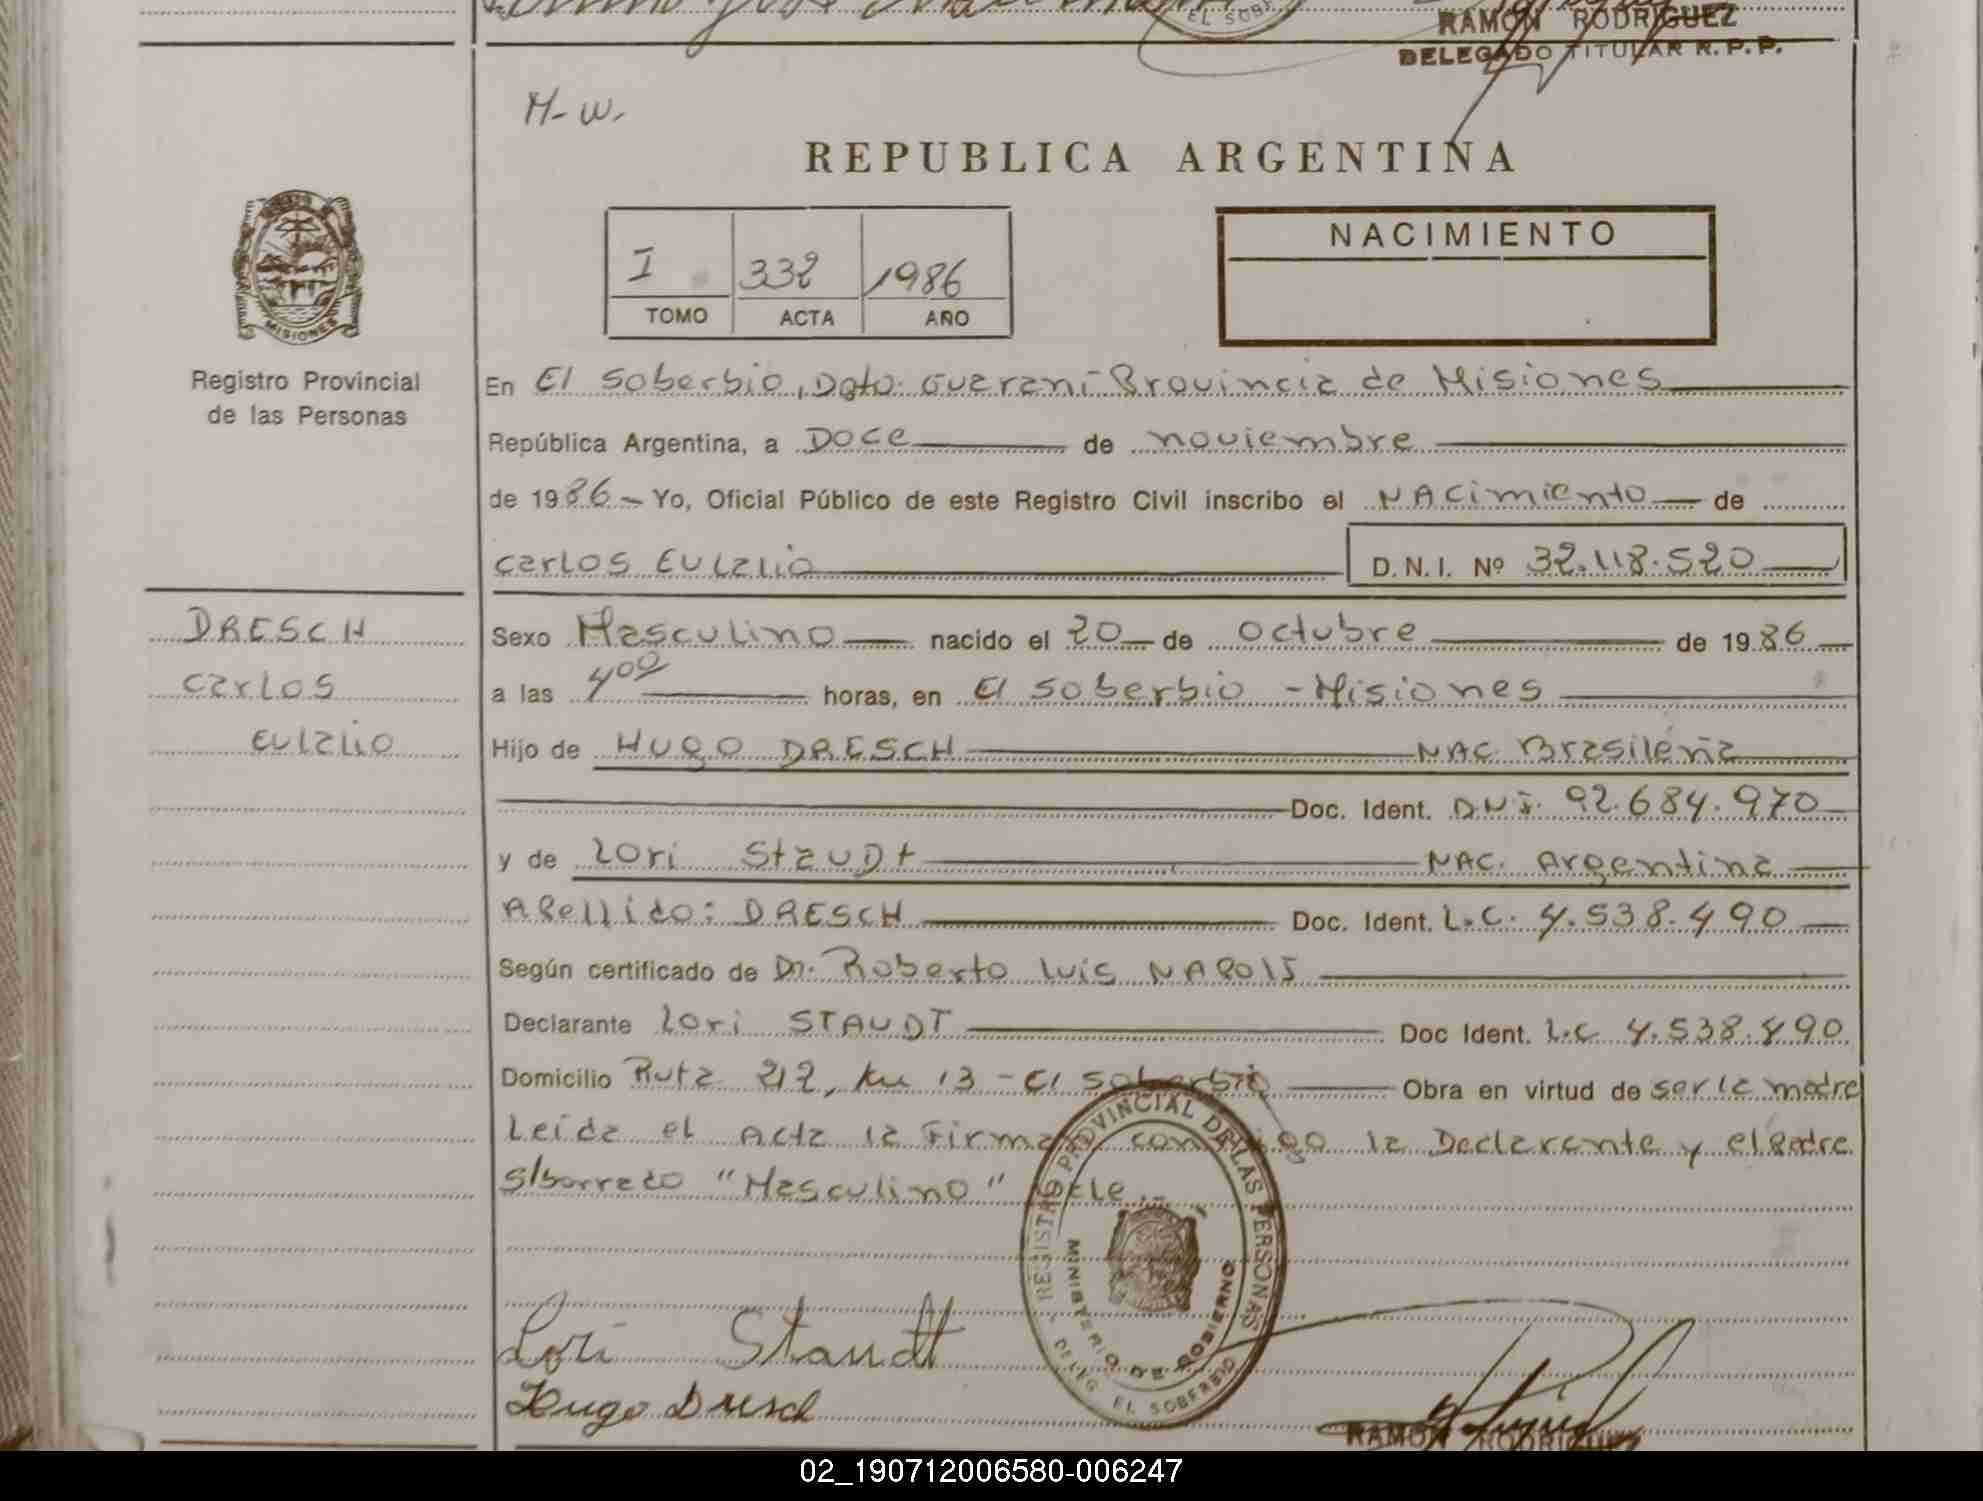 EL SOBE
RAMON RODRIGUEZ
DELEGADO TITULAR R.P.P.
M-W.
REPUBLICA ARGENTINA
MISIONES
Registro Provincial
de las Personas
I 332 1986
TOMO ACTA AÑO
NACIMIENTO
En El Soberbio, Dpto. Guarani Provincia de Misiones
República Argentina, a Doce de noviembre
de 1986 - Yo, Oficial Público de este Registro Civil inscribo el NACimiento de
Carlos Eulalio
D.N.I. Nº 32.118.520
DRESCH
Carlos
Eulalio
Sexo Masculino nacido el 20 de octubre de 1986
a las 4 00 horas, en El Soberbio - Misiones
Hijo de HUGO DRESCH NAC. Brasileña
Doc. Ident. D.N.I. 92.684.970
y de Lori StauDt NAC. Argentina
Apellido: DRESCH Doc. Ident. L.C. 4.538.490
Según certificado de Dr. Roberto Luis NAPOLI
Declarante Lori STAUDT Doc Ident. L.C. 4.538.490
Domicilio Ruta 212, Km 13 - El Soberbio Obra en virtud de ser la madre
Leida el Acta la Firman conmigo la Declarante y el Padre
S/borrado "Masculino" Vale.-
REGISTRO PROVINCIAL DE LAS PERSONAS
MINISTERIO DE GOBIERNO
DELEG. EL SOBERBIO
Lori Staudt
Hugo Dresch
RAMON RODRIGUEZ
02_190712006580-006247